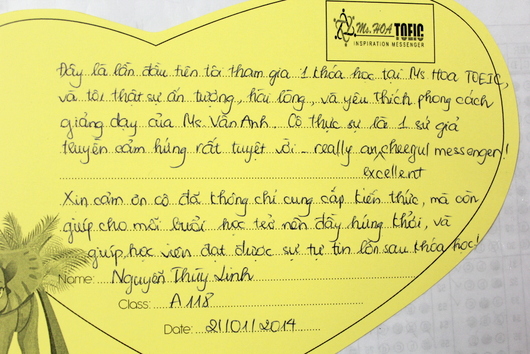 Ms. HOA TOEIC
INSPIRATION MESSENGER
Đây là lần đầu tiên tôi tham gia 1 khóa học tại Ms Hoa TOEIC,
và tôi thật sự ấn tượng, hài lòng, và yêu thích phong cách
giảng dạy của Ms. Vân Anh. Cô thực sự là 1 sứ giả
truyền cảm hứng rất tuyệt vời... really an cheerful messenger!
excellent
Xin cảm ơn cô đã không chỉ cung cấp kiến thức, mà còn
giúp cho mỗi buổi học trở nên đầy hứng khởi, và
giúp học viên đạt được sự tự tin lớn sau khóa học!
Name: Nguyễn Thùy Linh
Class: A118
Date: 21/01/2014